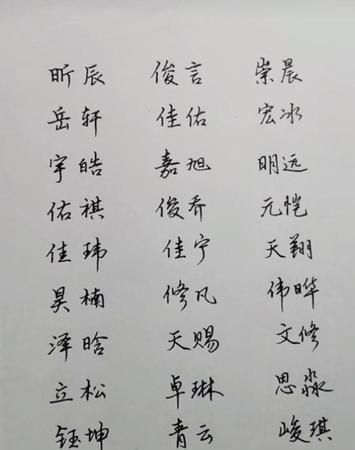 昕辰 俊言 崇晨
岳轩 佳佑 宏冰
宇皓 嘉旭 明远
佑祺 俊乔 元恺
佳玮 佳宁 天翔
昊楠 修凡 伟晔
泽晗 天赐 文修
立松 卓琳 思淼
钰坤 青云 峻琪